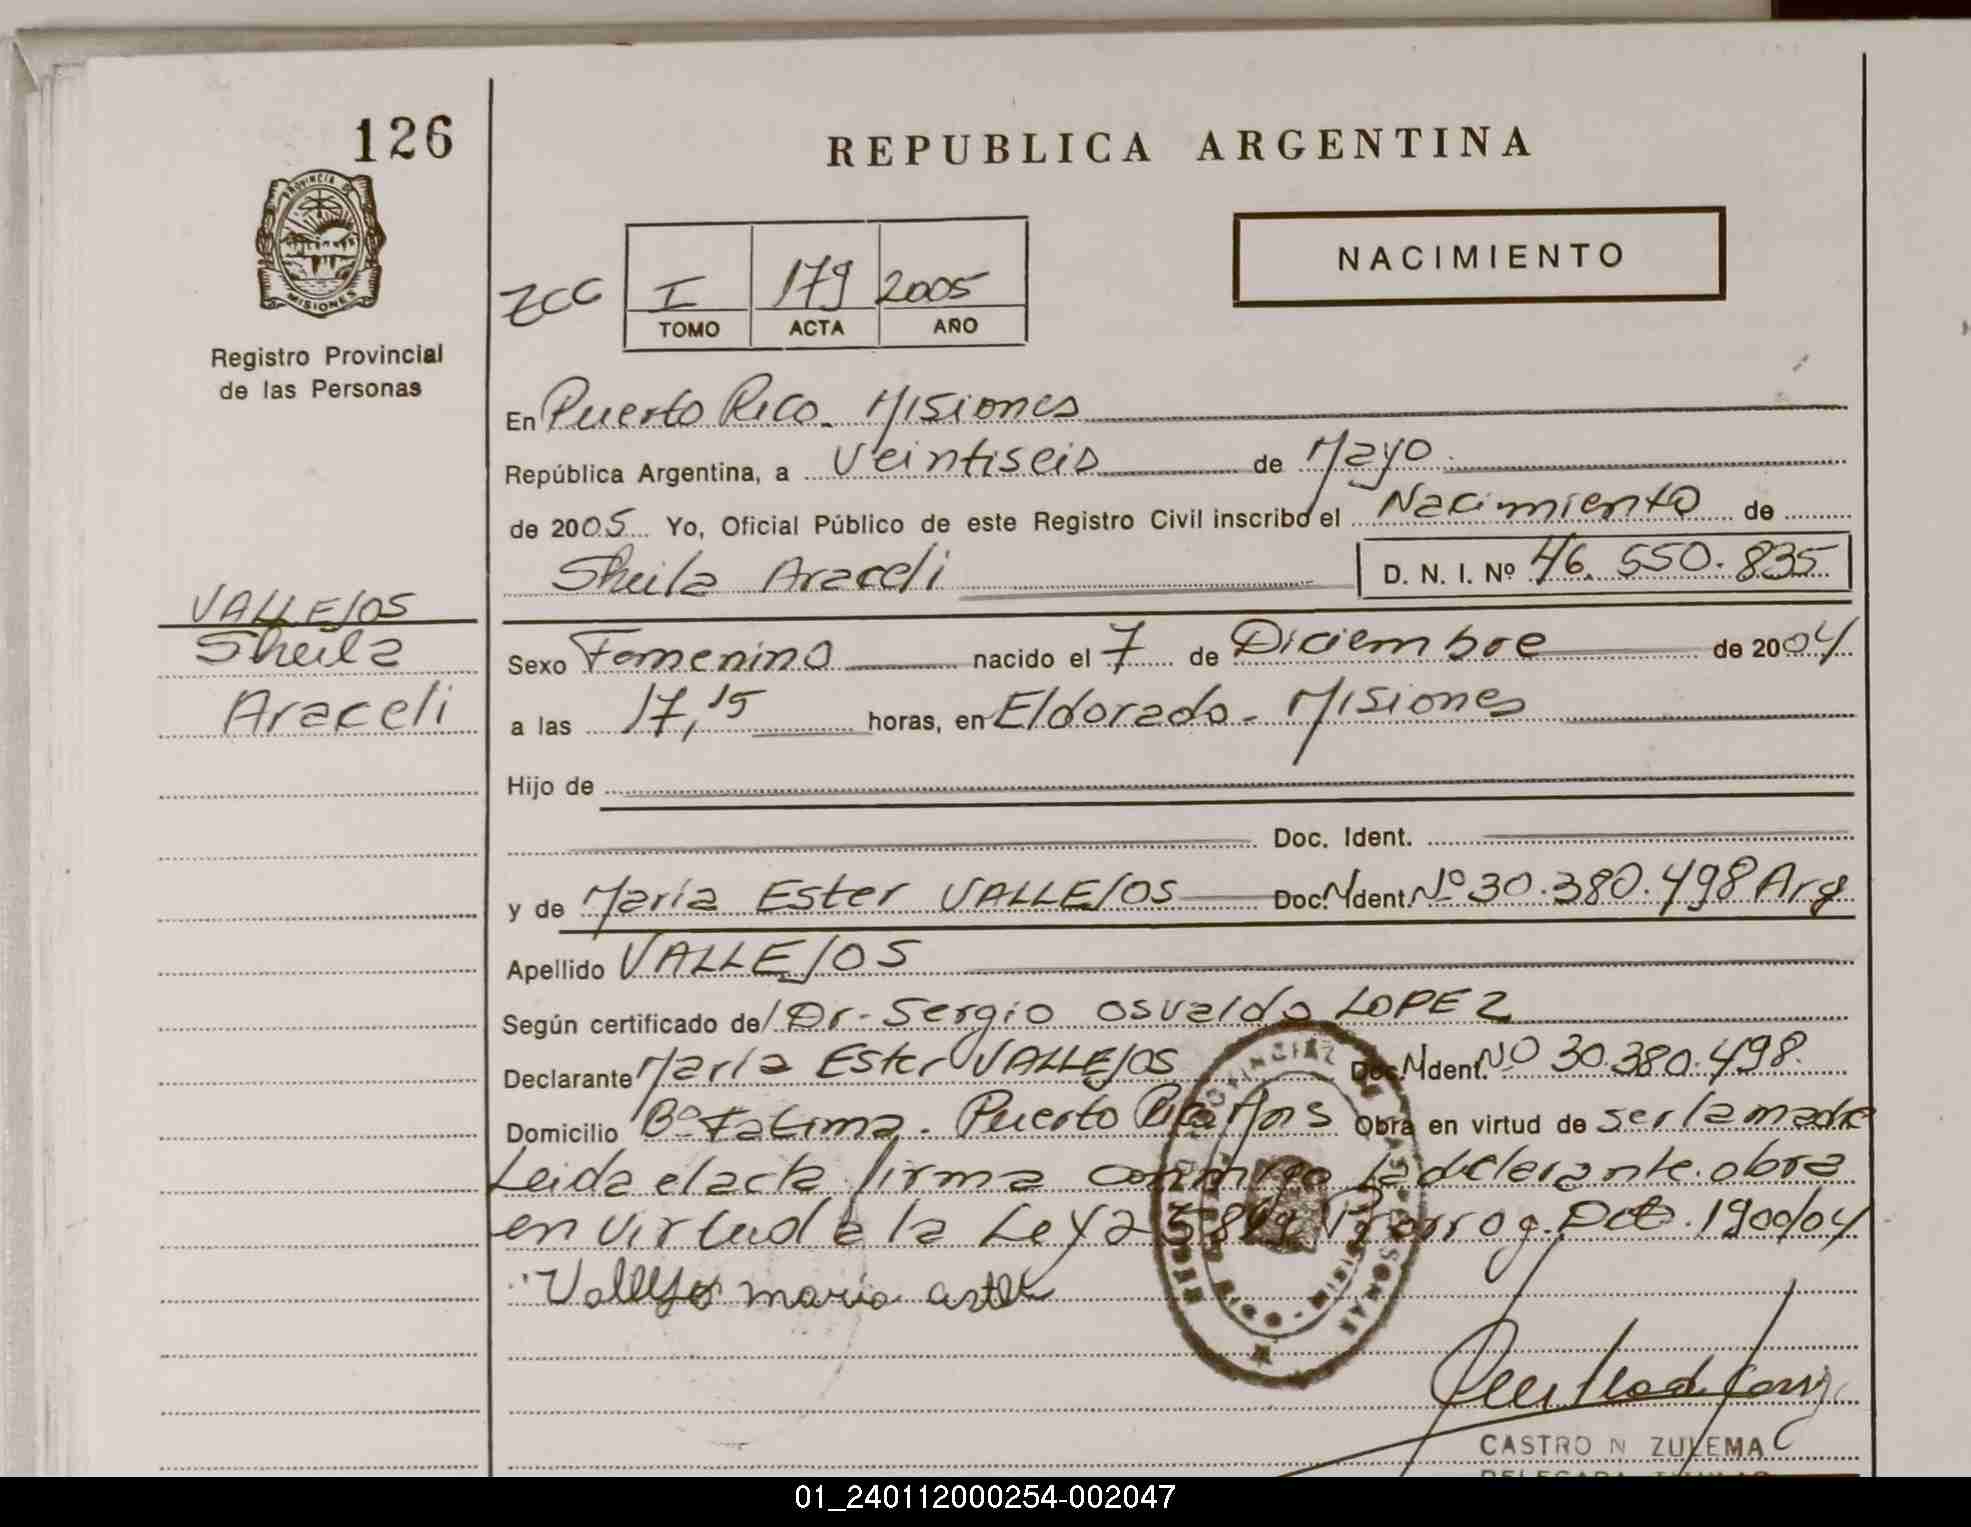 126
REPUBLICA ARGENTINA
PROVINCIA DE
MISIONES
Registro Provincial
de las Personas
NACIMIENTO
ZCC I 179 2005
TOMO ACTA AÑO
En Puerto Rico. Misiones
República Argentina, a Veintiseis de Mayo
de 2005 Yo, Oficial Público de este Registro Civil inscribo el Nacimiento de
Sheila Araceli D. N. I. Nº 46.550.835
VALLEJOS
Sheila
Araceli
Sexo Femenino nacido el 7 de Diciembre de 2004
a las 17,15 horas, en Eldorado - Misiones
Hijo de
Doc. Ident.
y de María Ester VALLEJOS Doc. N Ident. Nº 30.380.498 Arg
Apellido VALLEJOS
Según certificado de/ Dr. Sergio Osvaldo LOPEZ
Declarante María Ester VALLEJOS Doc. N Ident. Nº 30.380.498.
Domicilio Bº Fatima. Puerto Rico Mns Obra en virtud de ser la madre
Leida el acta firma conmigo la declarante. obra
en virtud a la Ley 25819 Prorrog. Dcto. 1900/04
Vallejos maria ester
CASTRO N ZULEMA
01_240112000254-002047